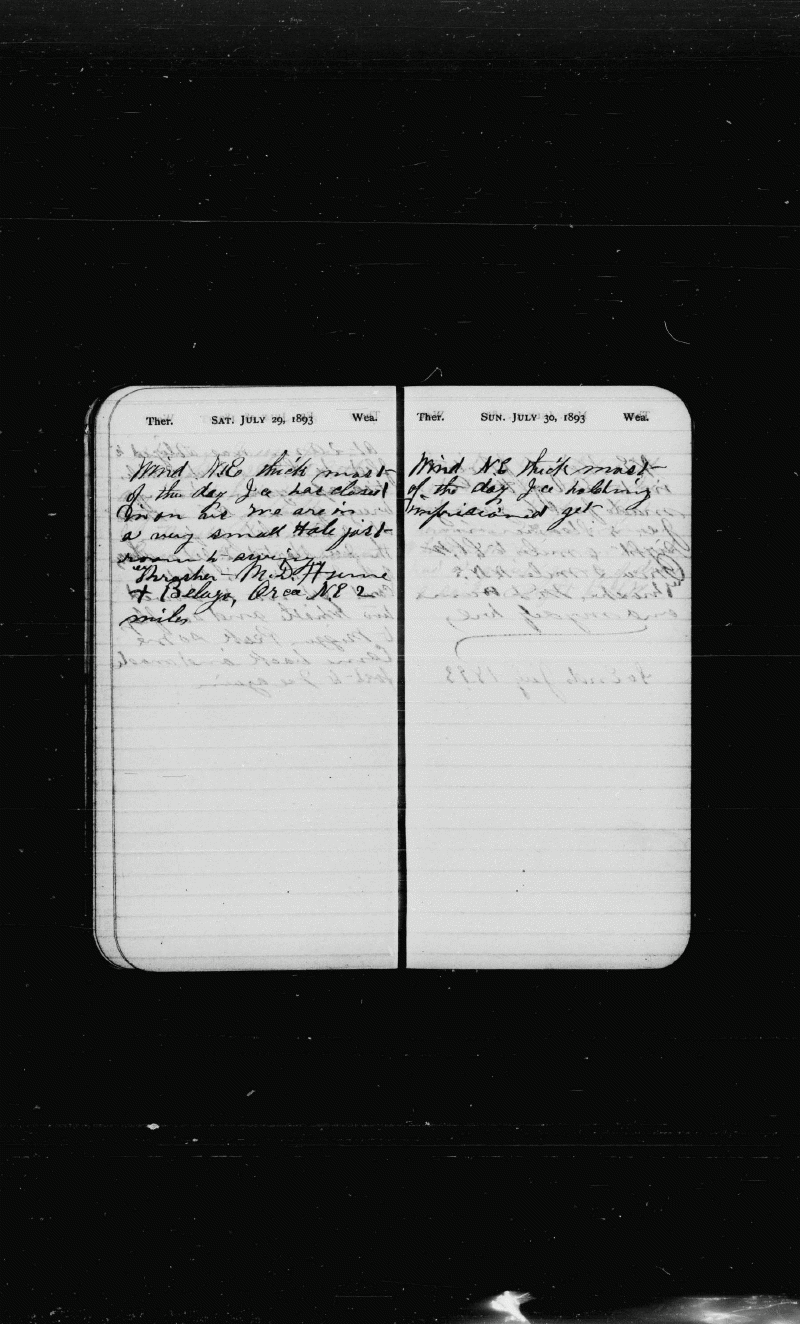 Ther. SAT. JULY 29, 1893 Wea.
Wind N.E thick most
of the day Ice has closed
in on his we are in
a very small Hole just
room to swing
Thrasher M.D. Hume
+ Beluga, Orca N.E 2
miles
Ther. SUN. JULY 30, 1893 Wea.
Wind N.E thick most
of the day Ice holding
imprisioned yet